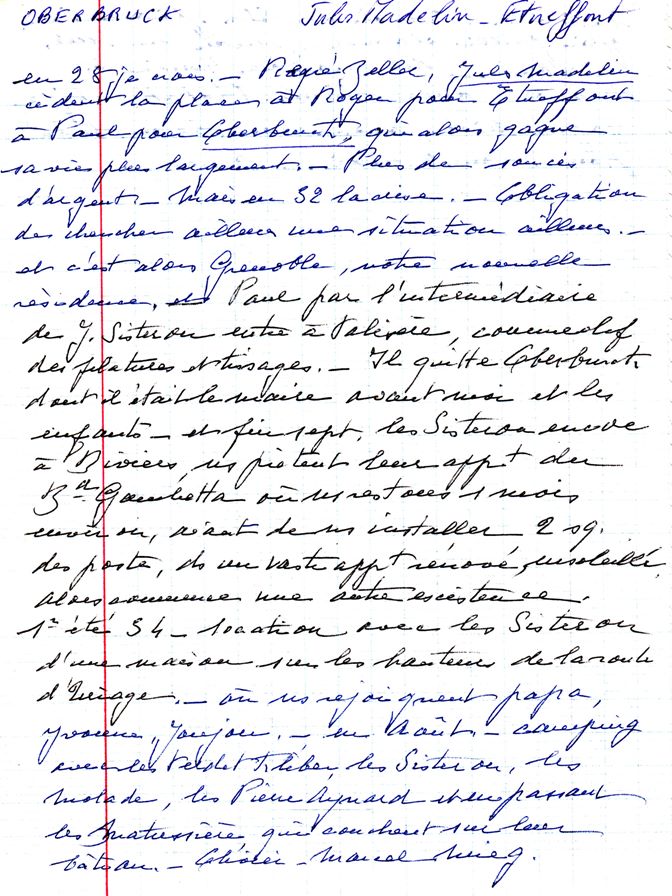 OBERBRUCK Jules Madelin - Etueffont
en 28 je crois. - Zeller, Jules Madelin
cèdent la place à Roger pour Etueffont
à Paul pour Oberbruck, qui alors gagne
sa vie plus largement. - Plus de soucis
d'argent. - Mais en 32 la crise. - Obligation
de chercher ailleurs une situation ailleurs. -
et c'est alors Grenoble, notre nouvelle
résidence. Paul par l'intermédiaire
de J. Sisteron entre à Valisère, comme chef
des filatures et tissages. - Il quitte Oberbruck
dont il était le maire avant moi et les
enfants - et fin sept. les Sisteron encore
à Riviers, ns prêtent leur appt du
Bd Gambetta où ns restons 1 mois
environ, avant de ns installer 2 sq.
des postes, ds un vaste appt rénové, ensoleillé,
alors commence une autre existence.
1er été 34 - location avec les Sisteron
d'une maison sur les hauteurs de la route
d'Uriage. - où ns rejoignent papa,
Yvonne, Joujou. - en Août - camping
avec les Verdet Kléber, les Sisteron, les
Molade, les Pierre Aynard et en passant
les qui couchent sur leur
bateau. - Olivier - Marcel Mieg.